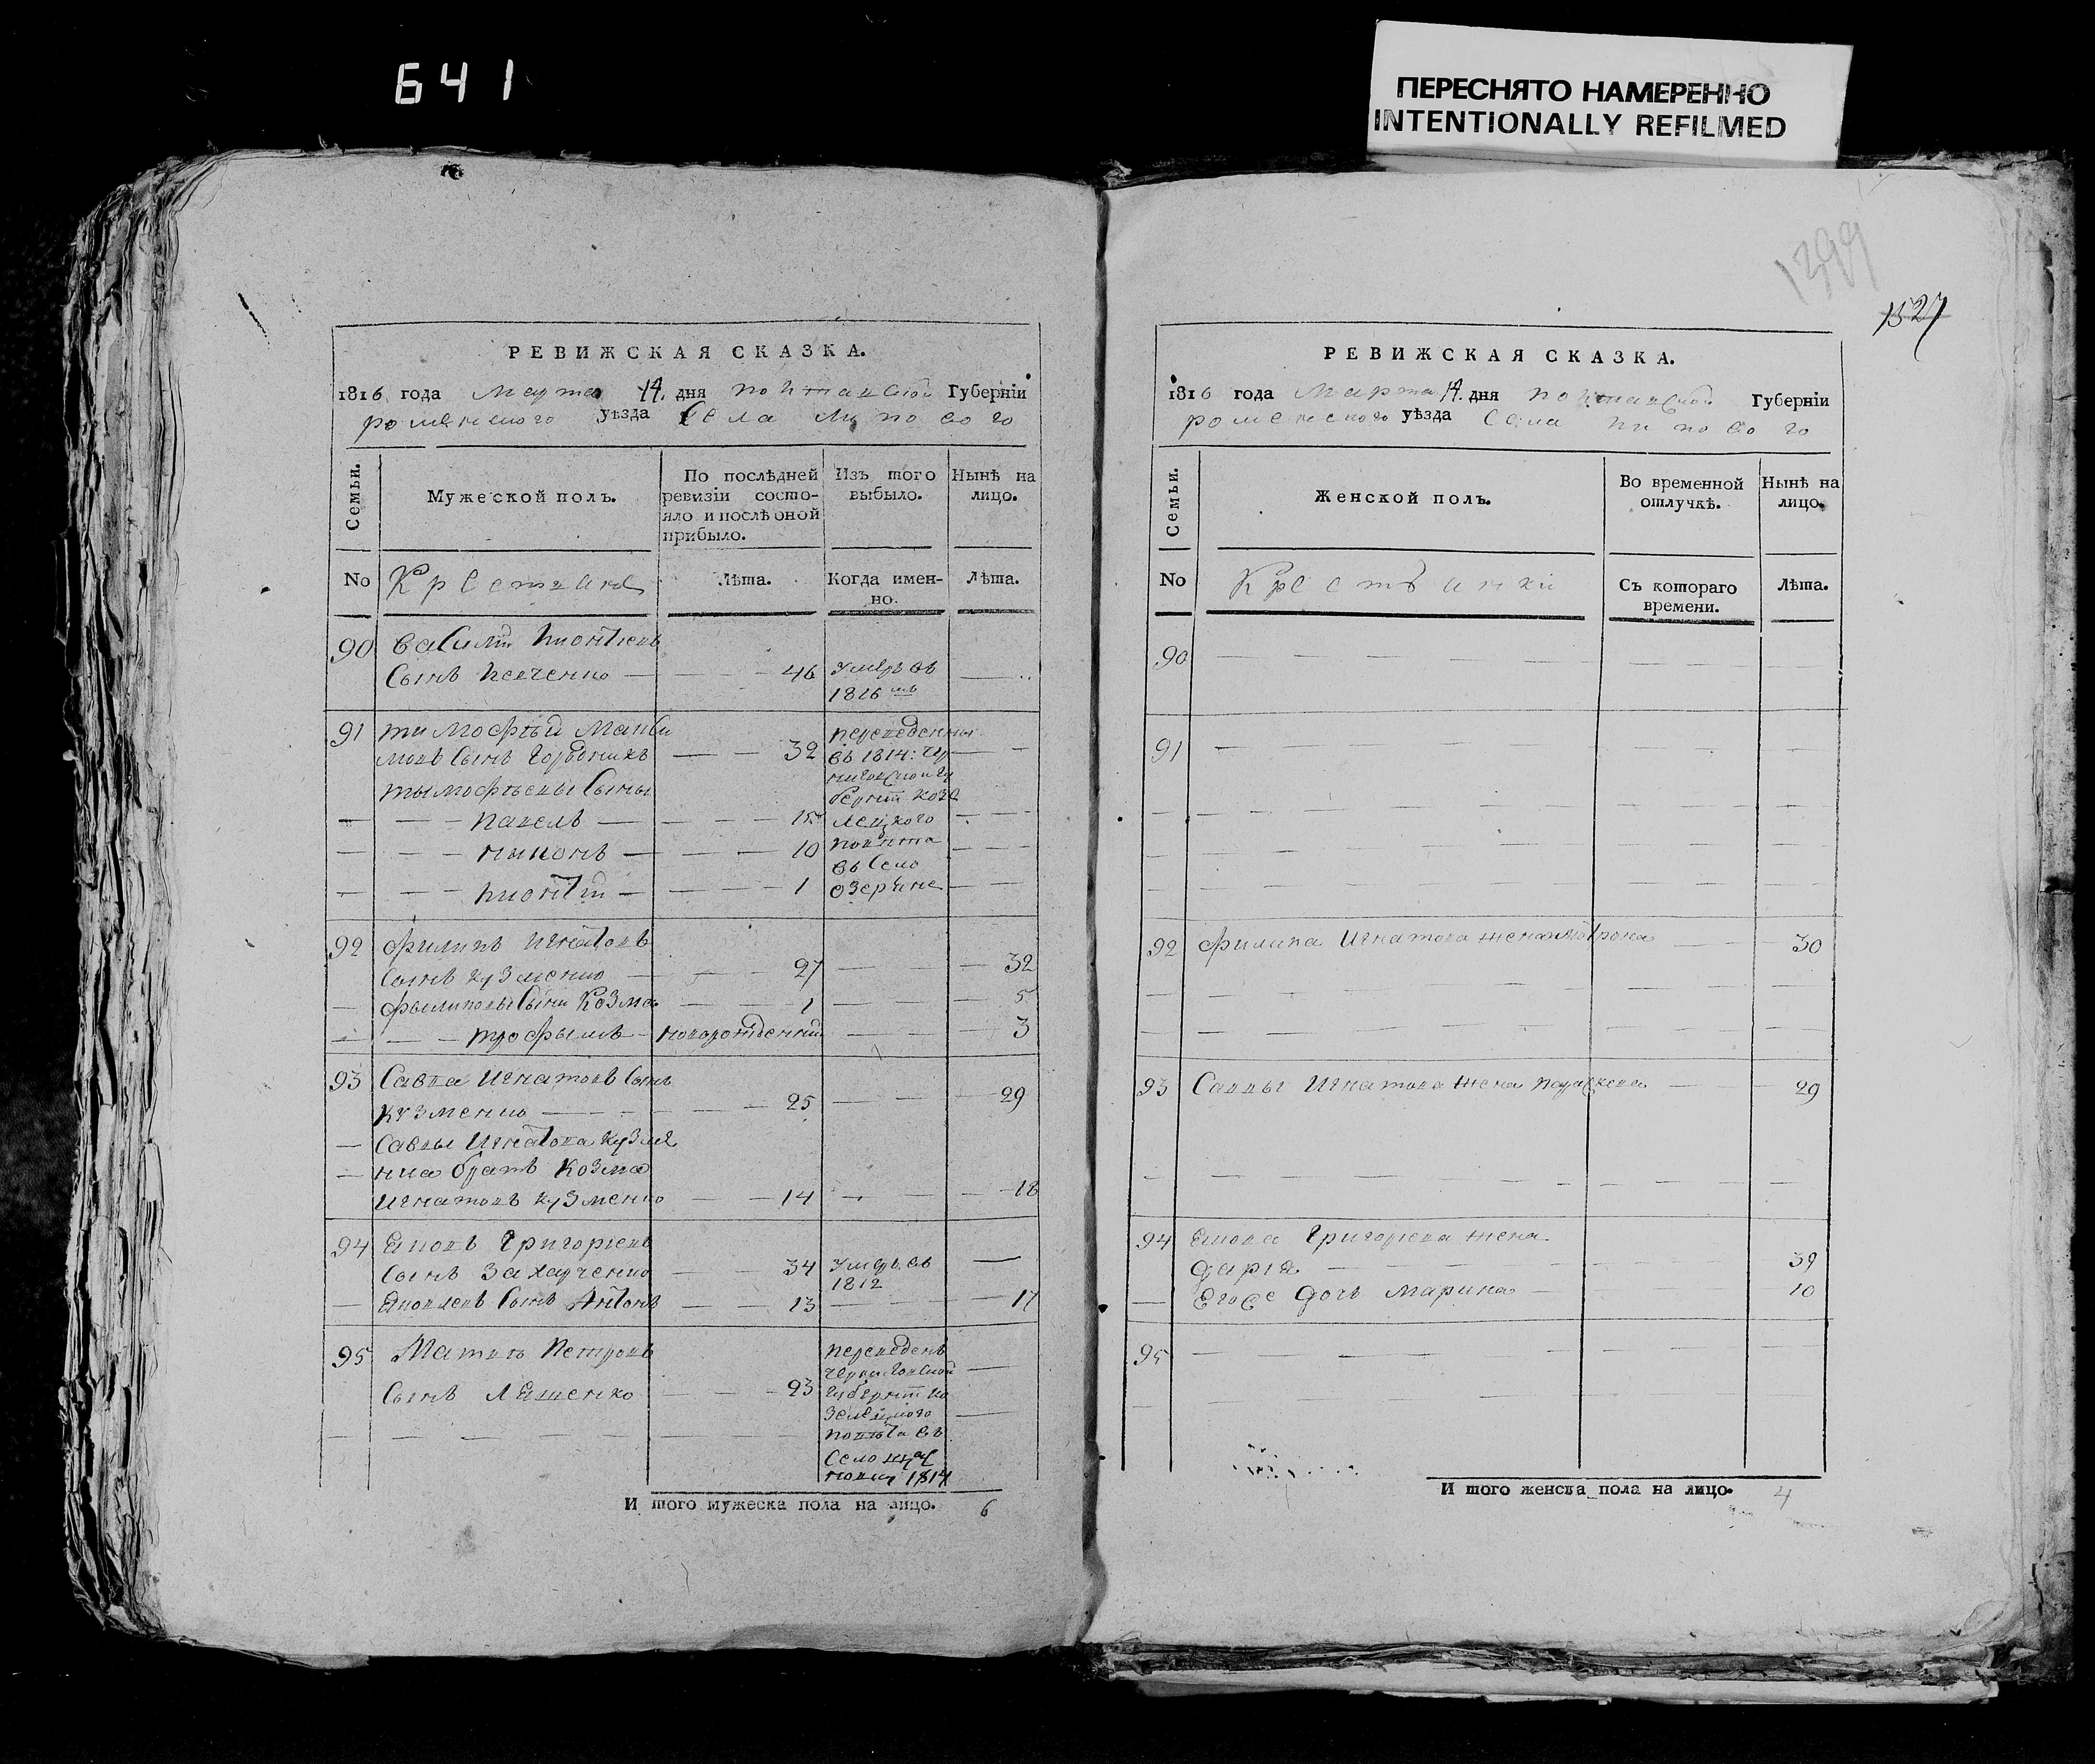 641
ПЕРЕСНЯТО НАМЕРЕННО
INTENTIONALLY REFILMED
РЕВИЖСКАЯ СКАЗКА.
1816 года марта 14. дня полтавской Губерніи
роменского уѣзда села липового
Семьи.
Мужеской полъ.
По послѣдней ревизіи состояло и послѣ оной прибыло.
Изъ того выбыло.
Нынѣ на лицо.
No
Крестьяне
Лѣта.
Когда именно.
Лѣта.
90 василий леонтіевъ
сынъ 46 умеръ въ
1816
91 тимофѣй
сынъ 32 переведены
въ 1814: чер
тымофѣевы сыны ниговской гу
берніи козе
павелъ 15 лецкого
никонъ 10 повѣта
въ село
леонтій 1 озеряне
92 филипъ игнатовъ
сынъ кузменко 27 32
филиповы сыны козма 1 5
трофымъ новорожденний 3
93 савва игнатовъ сынъ
кузменко 25 29
саввы игнатова кузме
нка братъ козма
игнатовъ кузменко 14 18
94 яковъ григоріевъ
сынъ захарченко 34 умеръ въ
1812
яковлевъ сынъ антонъ 13 17
95 матвѣй петровъ переведенъ
черниговской
сынъ лещенко 23 губерніи ко
зелецкого
повѣта въ
село
1814
И того мужеска пола на лицо. 6
1399
1527
РЕВИЖСКАЯ СКАЗКА.
1816 года марта 14. дня полтавской Губерніи
роменского уѣзда села липового
Семьи.
Женской полъ.
Во временной отлучкѣ.
Нынѣ на лицо.
No
Крестьянки
Съ котораго времени.
Лѣта.
90
91
92 филипа игнатова жена 30
93 саввы игнатова жена параскева 29
94 якова григорьева жена
дарія 39
его дочь марина 10
95
И того женска пола на лицо. 4